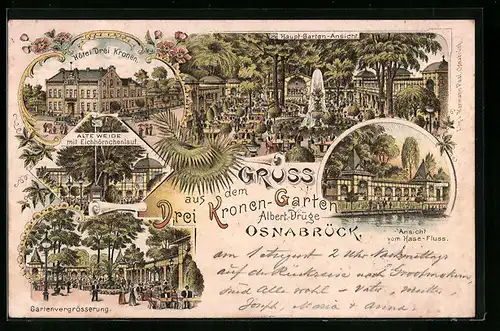 Hôtel Drei Kronen.
Haupt-Garten-Ansicht
ALTE WEIDE
mit Eichhörnchenlauf.
GRUSS
aus dem
Drei Kronen-Garten
Albert Drüge
OSNABRÜCK.
Ansicht
vom Hase-Fluss.
Gartenvergrösserung.
am 2 Uhr Nachmittags
auf der Rückreise nach
sind Alle wohl – Vater, Mutter
Joseph, Maria & Anna.